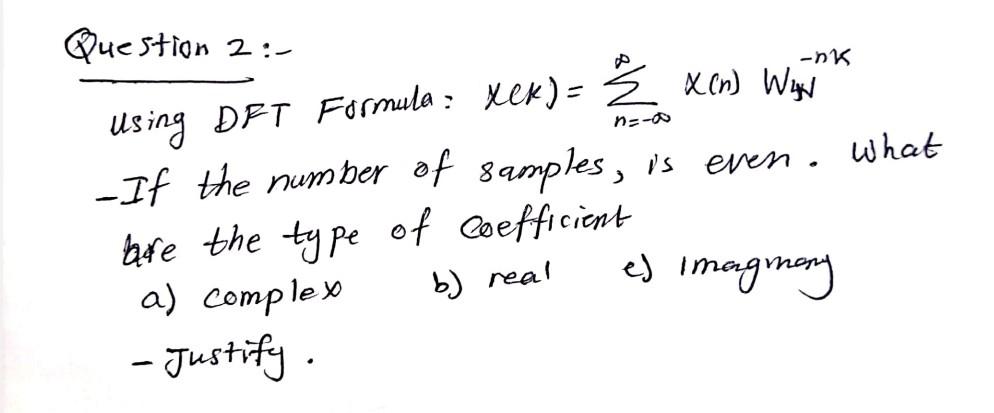 Question 2 :-
using DFT Formula : X(k) = ∞ Σ n=-∞ x(n) W_N^-nk
- If the number of samples, is even. What
are the type of coefficient
a) complex b) real c) imagmary
- Justify.